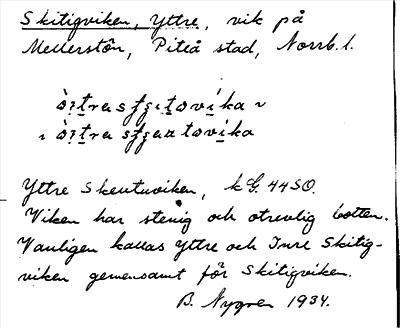 Skitigviken, Yttre, vik på
Mellerstön, Piteå stad, Norrb. l.
Yttre Skeutuviken, kG. 44SO.
Viken har stenig och otrevlig botten.
Vanligen kallas Yttre och Inre Skitig-
viken gemensamt för Skitigviken.
B. Nygren 1934.